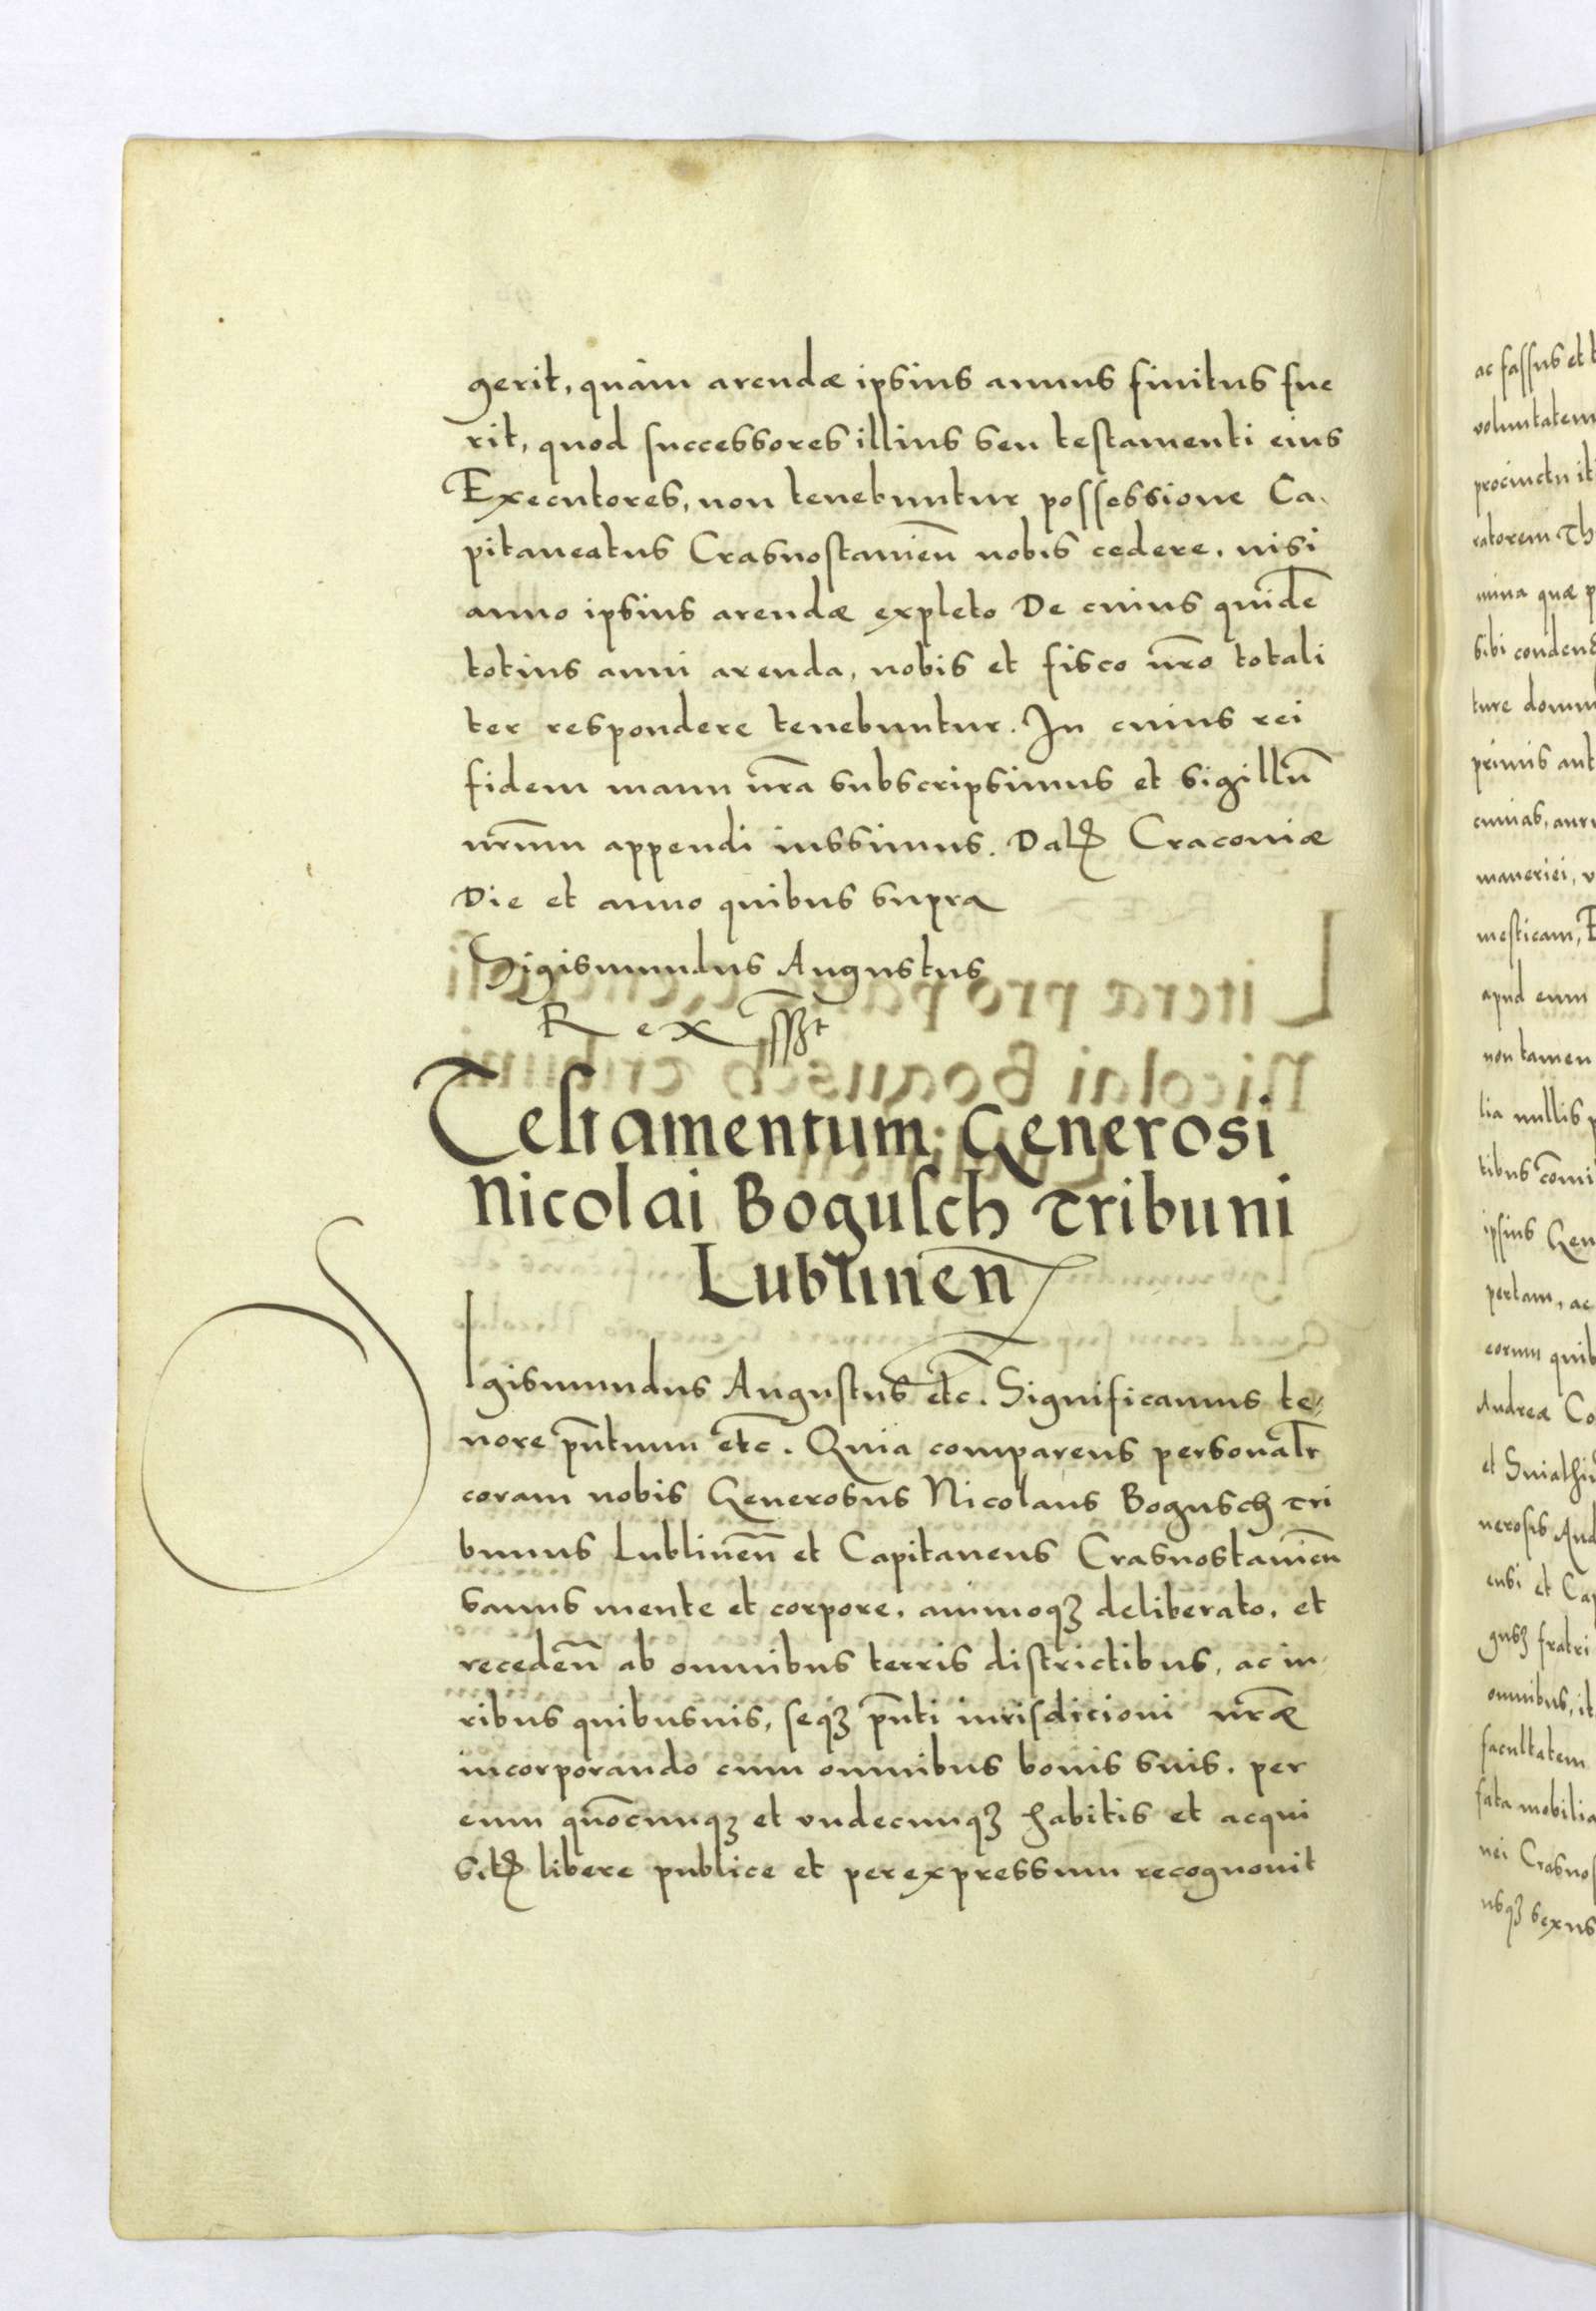 gerit, quàm arendæ ipsius annus finitus fue
rit, quod successores illius seu testamenti eius
Executores, non tenebuntur possessione Ca,
pitaneatus Crasnostauieñ nobis cedere, nisi
anno ipsius arendæ expleto De cuius quidẽ
totius anni arenda, nobis et fisco nr̃o totali
ter respondere tenebuntur. In cuius rei
fidem manu nr̃a subscripsimus et sigillũ
nr̃um appendi iussimus. Datꝭ Cracouiæ
Die et anno quibus supra
Sigismundus Augustus
Rex sst
Testamentum Generosi
Nicolai Bogusch Tribuni
Lublineñ
Sigismundus Augustus etc̃. Significamus te„
nore pñtium etc̃. Quia comparens personalr̃
coram nobis Generosus Nicolaus Bogusch Tri
bunus Lublineñ et Capitaneus Crasnostauieñ
sanus mente et corpore, animoqꝫ deliberato, et
recedeñ ab omnibus terris districtibus, ac iu,
ribus quibusuis, seqꝫ pñti iurisdicioni nr̃æ
incorporando cum omnibus bonis suis, per
eum quõcunqꝫ et vndecunqꝫ habitis et acqui
sitꝭ libere publice et per expressum recognouit
ac fassus et
voluntatem
procinctu
ratorem
mina quæ
sibi
ture
primis
cuius,
maneriei,
mesticam,
apud eum
non tamen
lia nullis
tibus
ipsius
pertam, ac
eorum
Andreæ
et
nerosis
ensi et
fratri
omnibus,
facultatem
fata mobilia
nei
usqꝫ sexus